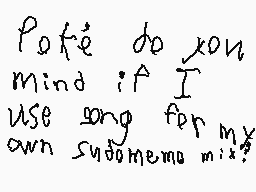 Poké do you
mind if I
use song for my
own sudomemo mix?